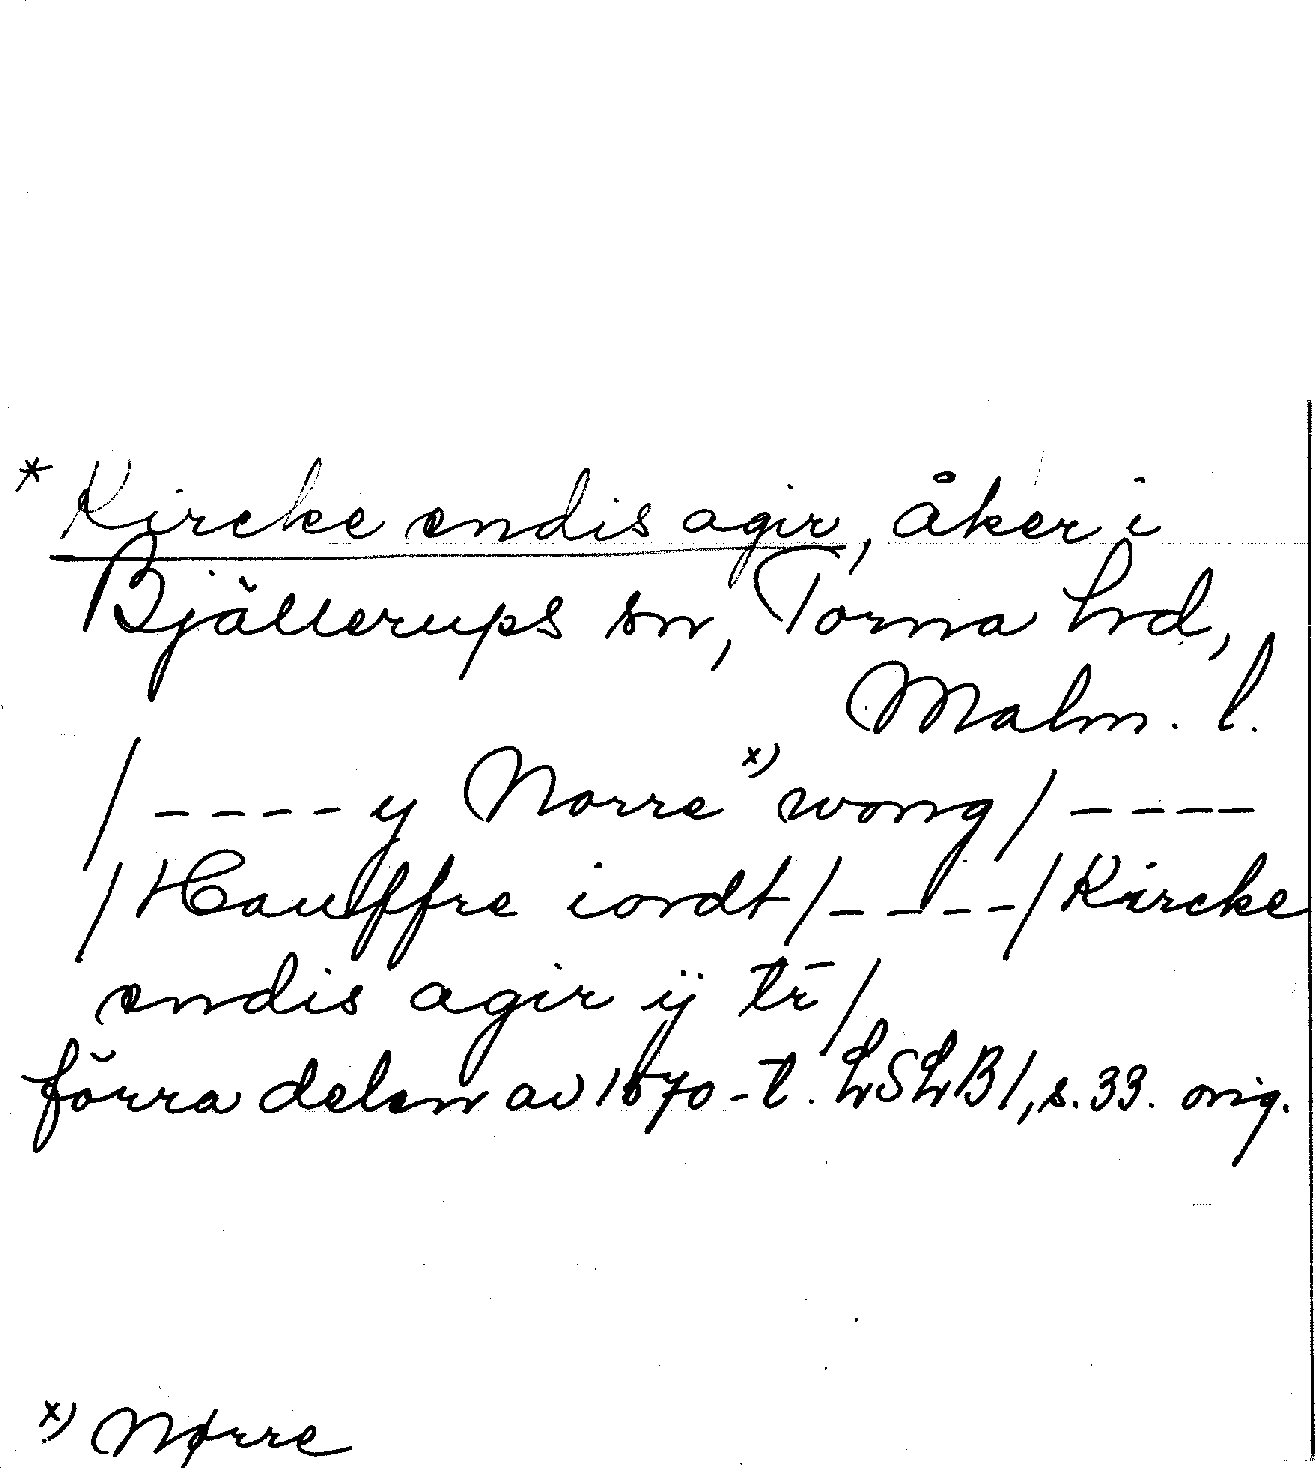 * Kircke endis agir, åker i
Bjällerups sn, Torna hrd,
Malm. l.
/ - - - - y Norre x) wong / - - - -
/ Hauffre iordt / - - - - / Kircke
endis agir ij tr̄ /
förra delen av 1670-t. LSLB1, s. 33. orig.
x) Nørre